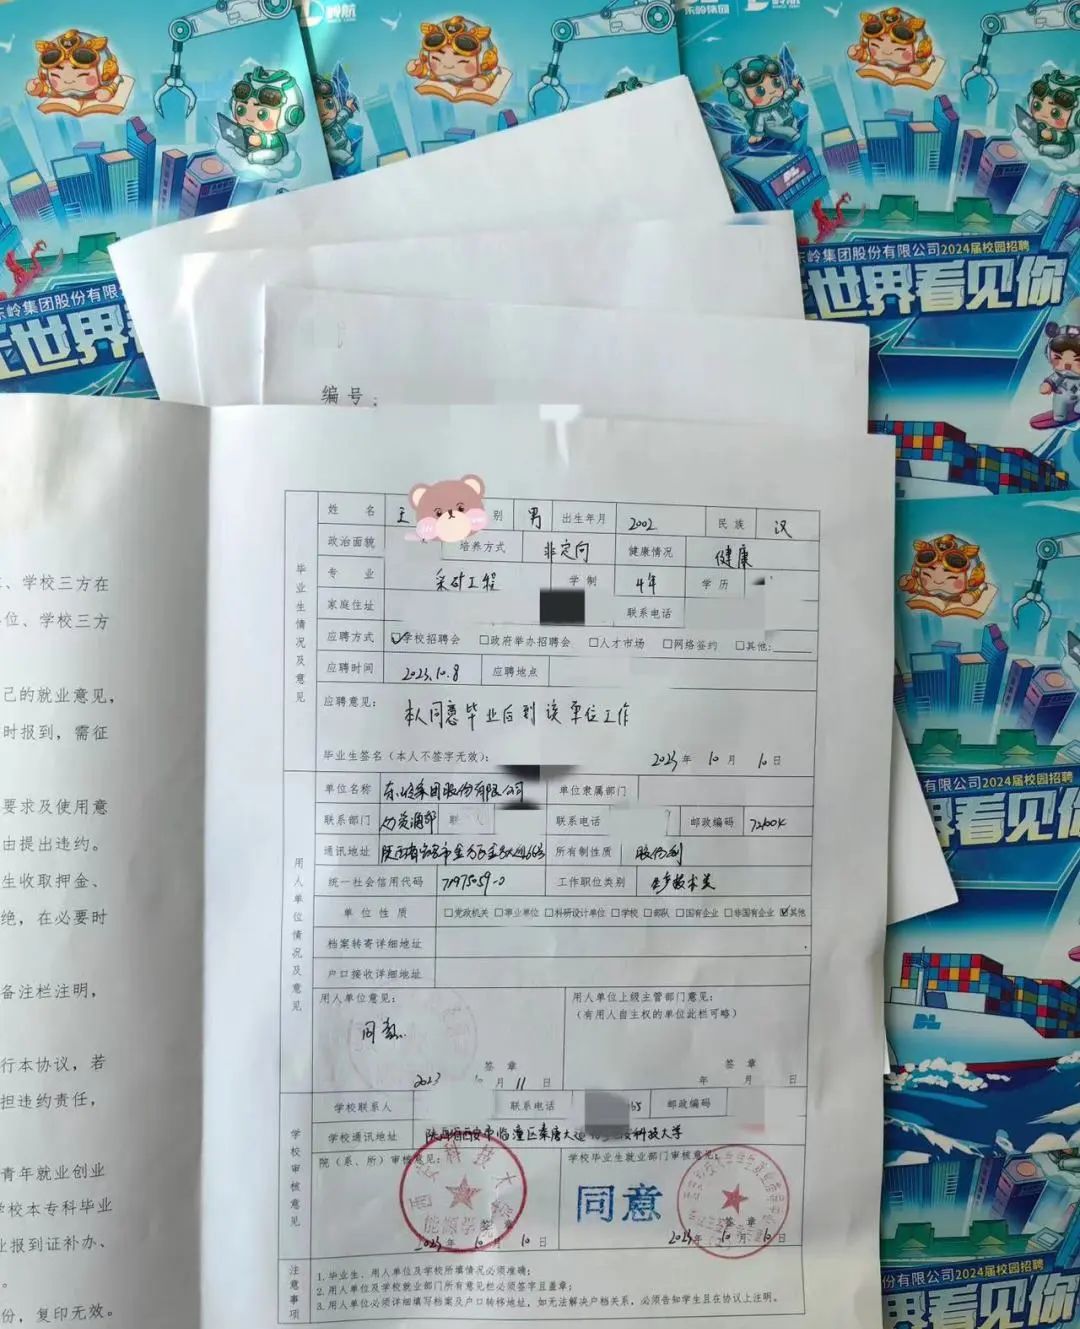 岭航
东岭集团
岭航
东岭集团股份有限公司2024届校园招聘
世界看见你
岭集团股份有限
世界
编号:
、学校三方在
位、学校三方
己的就业意见,
时报到,需征
要求及使用意
由提出违约。
生收取押金、
绝,在必要时
备注栏注明,
行本协议,若
担违约责任,
青年就业创业
学校本专科毕业
业报到证补办、
份,复印无效。
毕业生情况及意见
姓名 王 别 男 出生年月 2002 民族 汉
政治面貌 培养方式 非定向 健康情况 健康
专业 采矿工程 学制 4年 学历
家庭住址 联系电话
应聘方式 ☑学校招聘会 □政府举办招聘会 □人才市场 □网络签约 □其他:
应聘时间 2023.10.8 应聘地点
应聘意见:
本人同意毕业后到该单位工作
毕业生签名(本人不签字无效): 2023年10月10日
用人单位情况及意见
单位名称 东岭集团股份有限公司 单位隶属部门
联系部门 联 人 联系电话 邮政编码
通讯地址 所有制性质 股份制
统一社会信用代码 71975059-0 工作职位类别 生产技术类
单位性质 □党政机关 □事业单位 □科研设计单位 □学校 □部队 □国有企业 □非国有企业 ☑其他
档案转寄详细地址
户口接收详细地址
用人单位意见:
同意
签章
2023 10月11日
用人单位上级主管部门意见:
(有用人自主权的单位此栏可略)
签章
年 月 日
学校审核意见
学校联系人 联系电话 65 邮政编码
学校通讯地址 陕西省西安市临潼区秦唐大道 科技大学
院(系、所)审核意见:
西安科技大学
能源学院
签章
2023年10月10日
学校毕业生就业部门审核意见:
同意
签章
2023年10月10日
注意事项
1.毕业生、用人单位及学校所填情况必须准确;
2.用人单位及学校就业部门所有意见栏必须签字且盖章;
3.用人单位必须详细填写档案及户口转移地址,如无法解决户档关系,必须告知学生且在协议上注明。
有限公司2024届校园招聘
界看见你
DL
份有限公司2024届校园招聘
界看见你